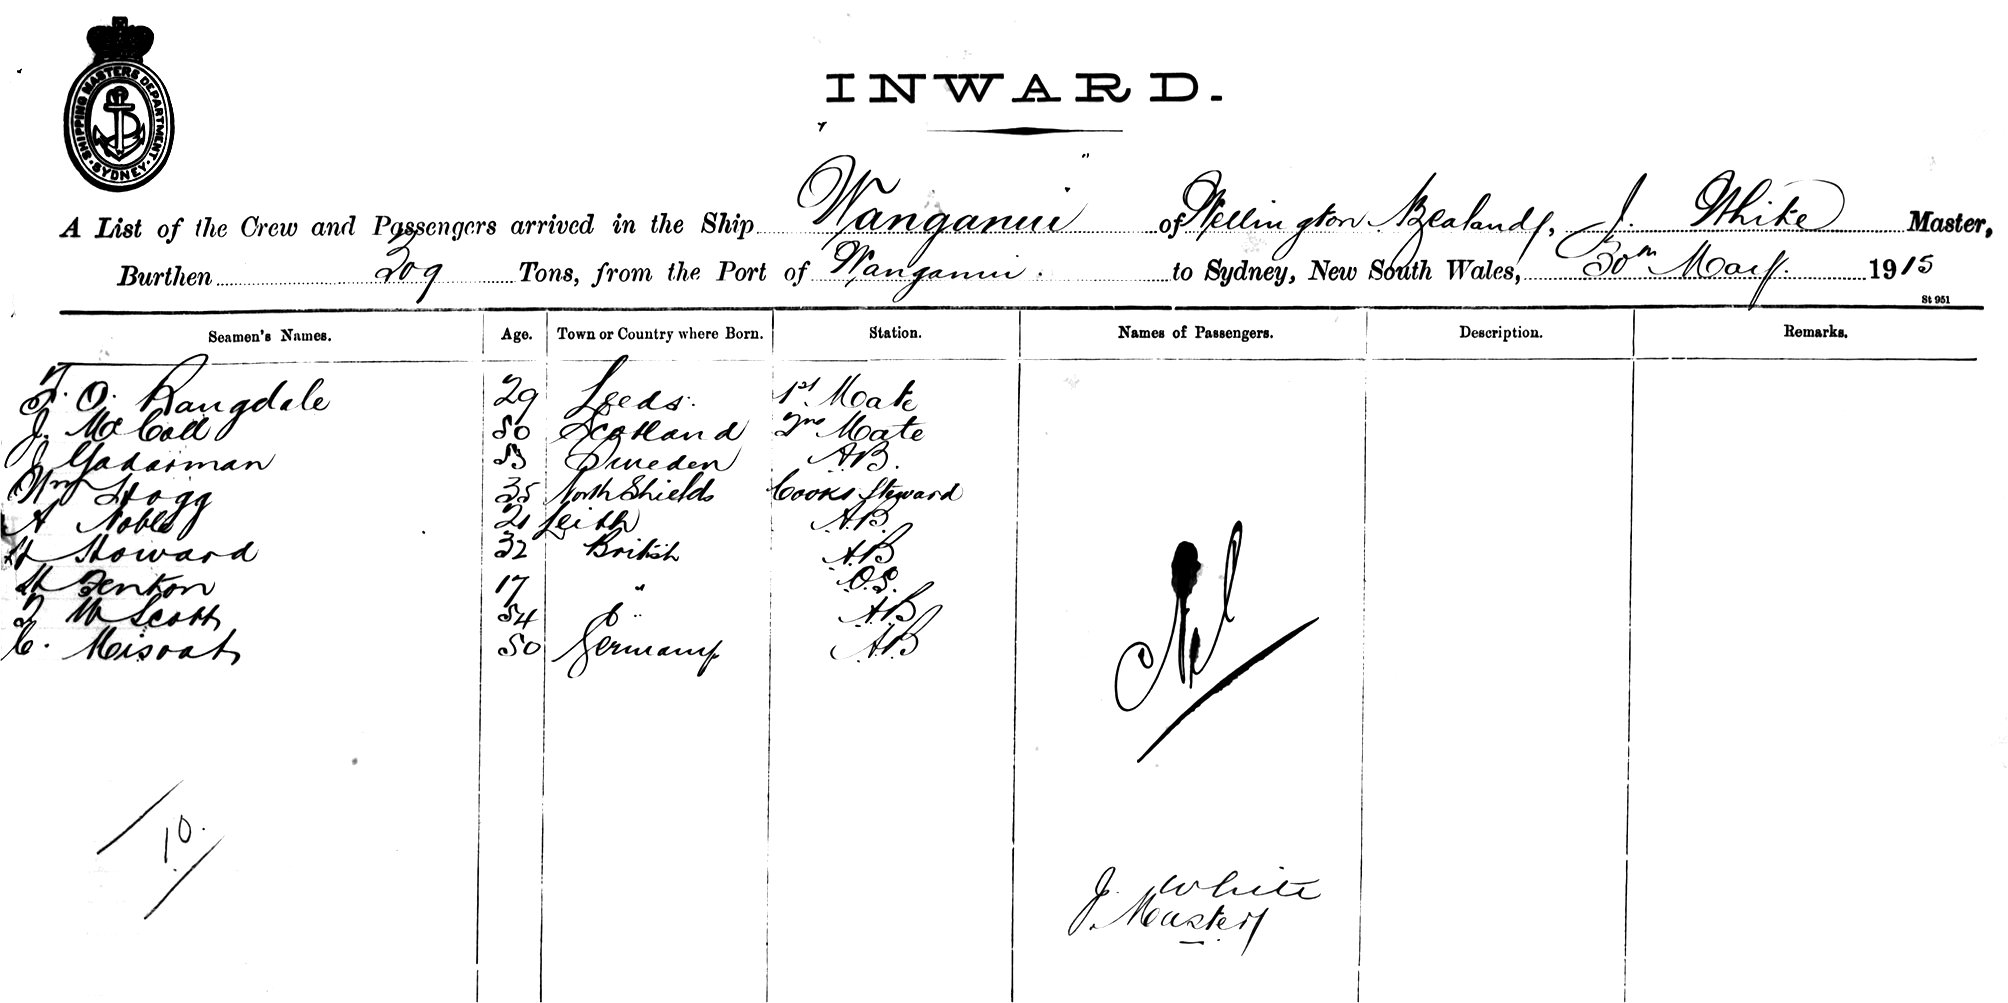 SHIPPING MASTERS DEPARTMENT. SYDNEY.
INWARD.
A List of the Crew and Passengers arrived in the Ship Wanganui of Wellington N Zealand, J. White Master,
Burthen 209 Tons, from the Port of Wanganui. to Sydney, New South Wales, 30th May. 1915
St 951
Seamen's Names. Age. Town or Country where Born. Station. Names of Passengers. Description. Remarks.
O. Rangdale 29 Leeds. 1st Mate
J. McColl 50 Scotland 2nd Mate
J 53 Sweden A.B.
Wm Hogg 35 North Shields Cook & Steward
A Noble 21 Leith A.B.
H Howard 32 British A.B
H Fenton 17 " O.S.
W Scott 54 " A.B
C. 50 Germany A.B
Nil
10.
J. White
Master